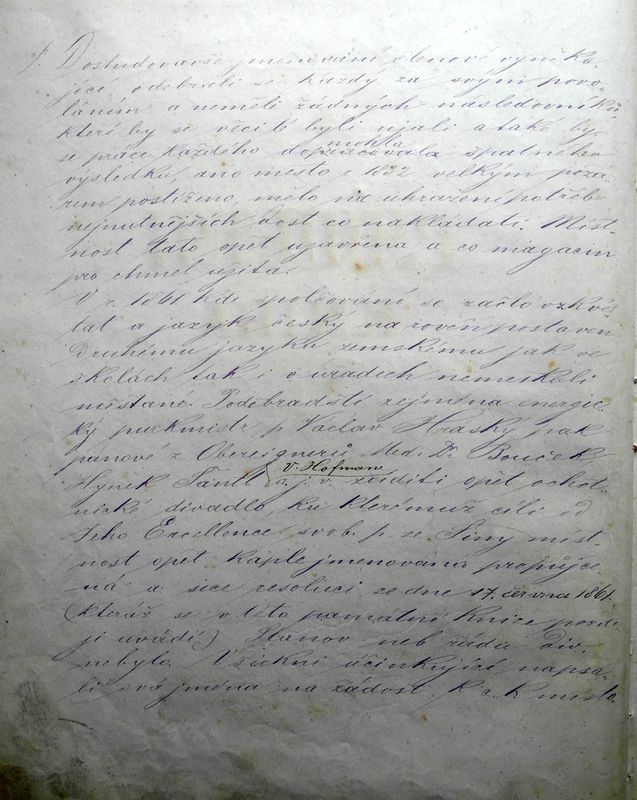 Dostudovavše jmenovaní členové vynika-
jící, odebrali se každý za svým povo-
láním a neměli žádných následovníků
kteří by se věci té byli ujali a také by
se práce každého mohla spatného
výsledku, ano město r. 1832 velkým požá-
rem postiženo, mělo na uhražení potřeb
nejnutnějších dost co nakládati. Míst-
nost tato opět uzavřena a co magacin
pro chmel užita.
V r. 1861 kde spolčování se začlo vzkvé-
tat a jazyk český na roveň postaven
druhému jazyku zemskému jak ve
školách tak i v úřadech nemeškali
místané Poděbradští zejména energic-
ký purkmistr p. Václav Hráský, pak
panové z Obereignerů Med. Dr. Bouček
V. Hofmann
Hynek a j. v. zříditi opět ochot-
nické divadlo, ku kterémuž cíli od
Jeho Excellence svob. p. ze Siny míst-
nost opět kaple jmenovaná propůjče-
ná a sice resolucí ze dne 17. června 1861.
(kteráž se v této památní knize pozdě-
ji uvádí.) Stanov neb řádu div.
nebylo. Všickni účinkující napsa-
li svá jména na žádost K. a K. místo-